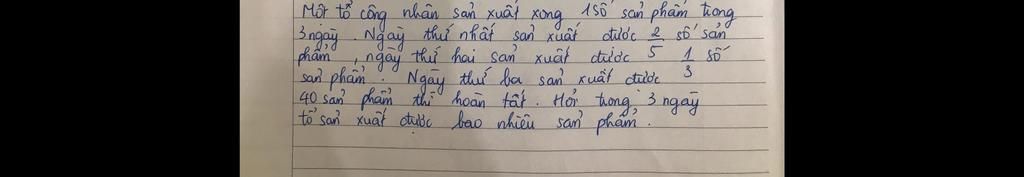 Một tổ công nhân sản xuất xong 1 số sản phẩm trong
3 ngày. Ngày thứ nhất sản xuất được 2/5 số sản
phẩm, ngày thứ hai sản xuất được 1/3 số
sản phẩm. Ngày thứ ba sản xuất được
40 sản phẩm thì hoàn tất. Hỏi trong 3 ngày
tổ sản xuất được bao nhiêu sản phẩm.